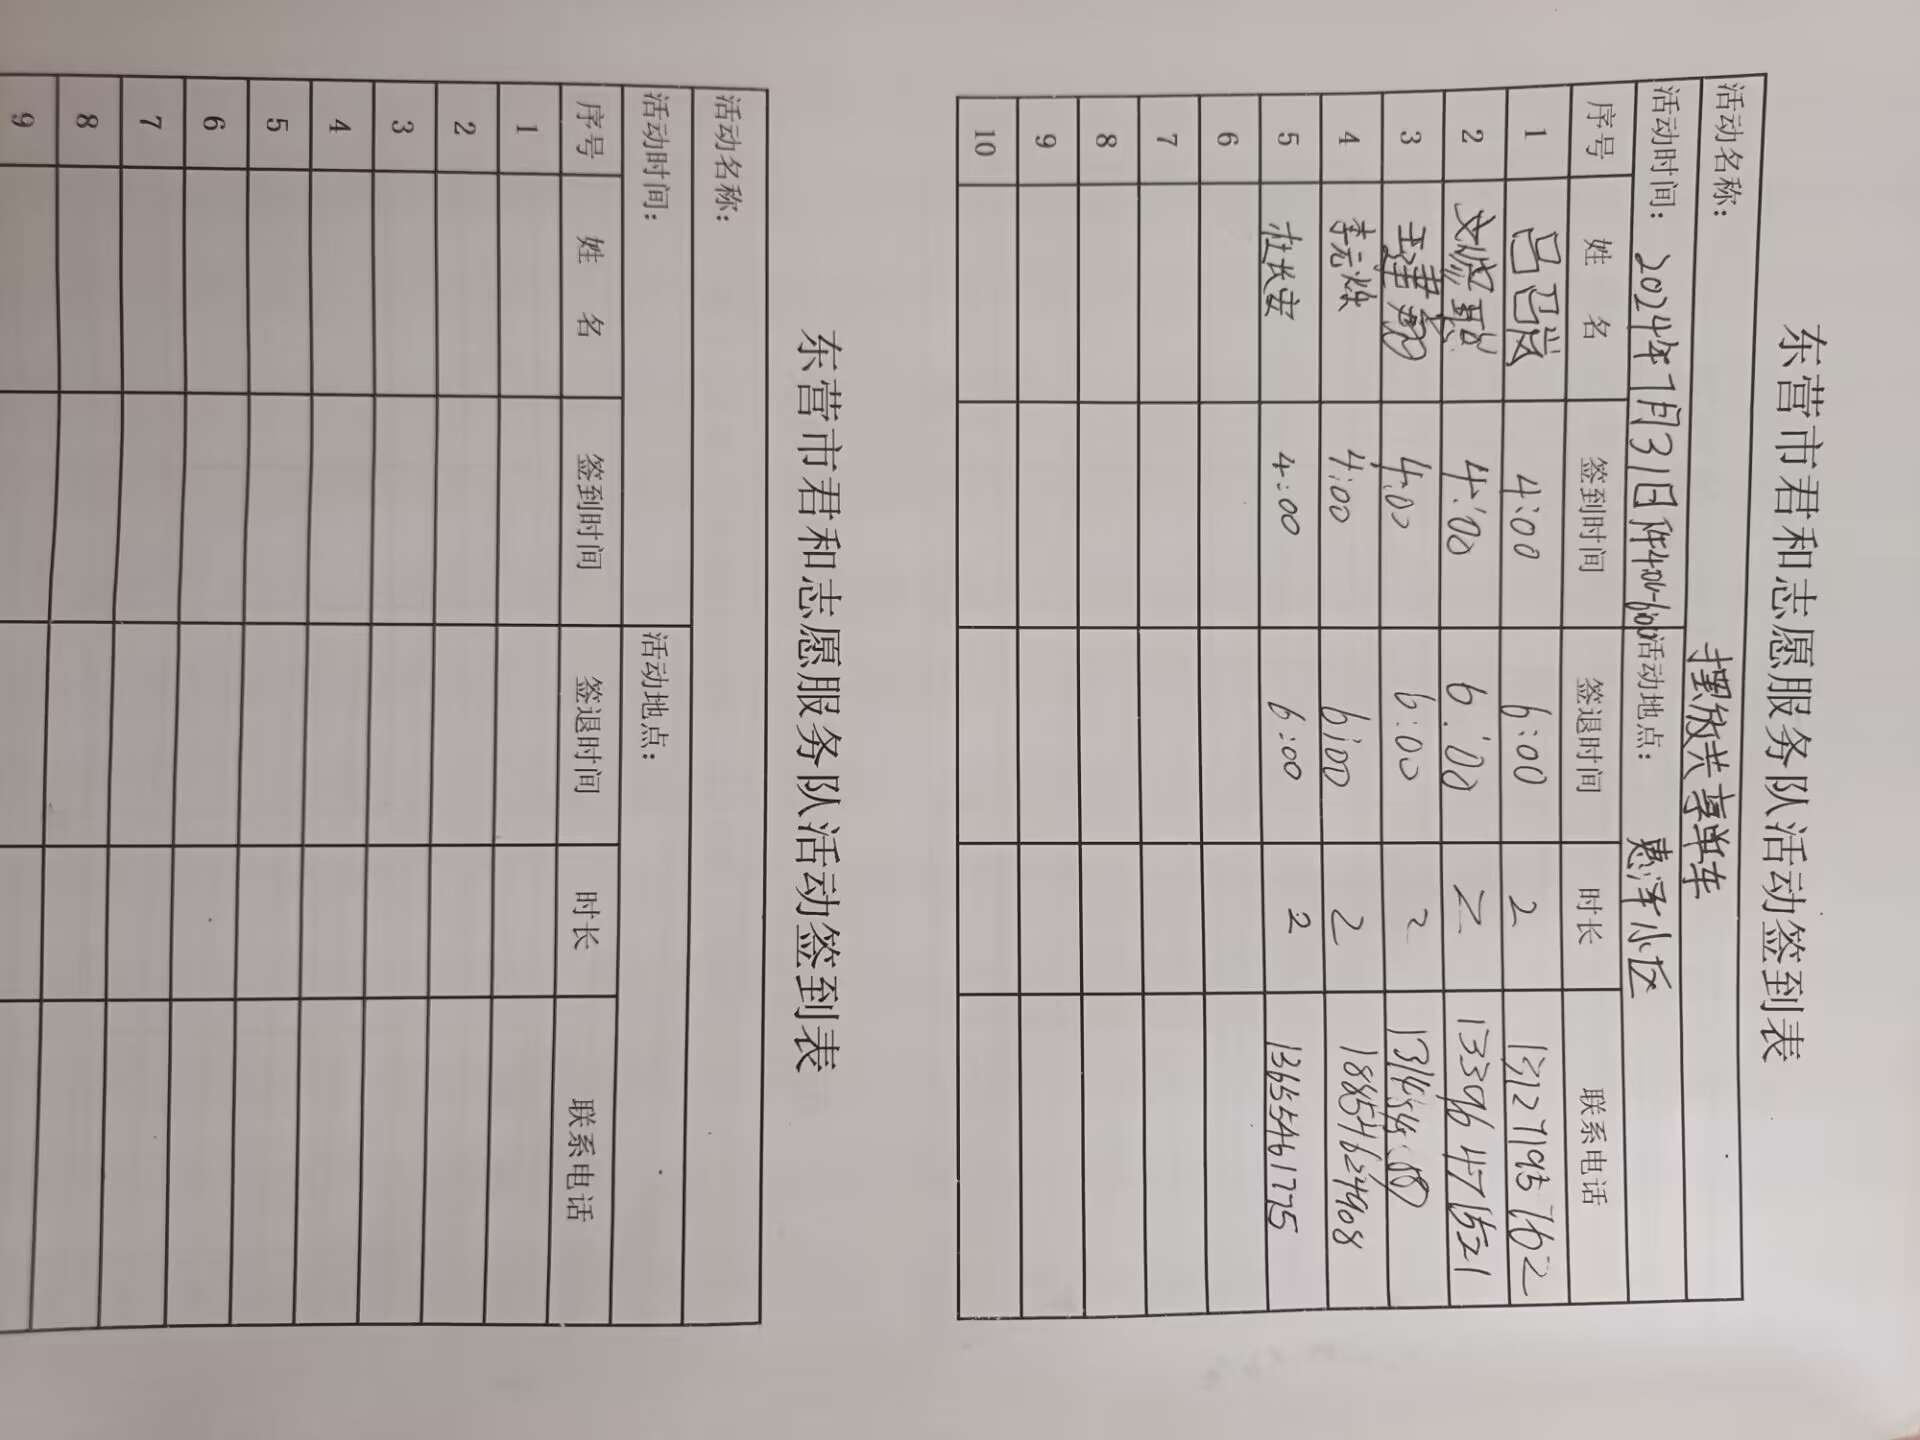 东营市君和志愿服务队活动签到表
活动名称： 摆放共享单车
活动时间： 2024年7月31日 4:00-6:00 活动地点： 惠泽小区
序号 姓 名 签到时间 签退时间 时长 联系电话
1 吕 4:00 6:00 2 13127193762
2 4:00 6:00 2 13396471521
3 王建 4:00 6:00 2
4 李元 4:00 6:00 2 18854624908
5 杜长安 4:00 6:00 2 13655461775
6
7
8
9
10
东营市君和志愿服务队活动签到表
活动名称：
活动时间： 活动地点：
序号 姓 名 签到时间 签退时间 时长 联系电话
1
2
3
4
5
6
7
8
9